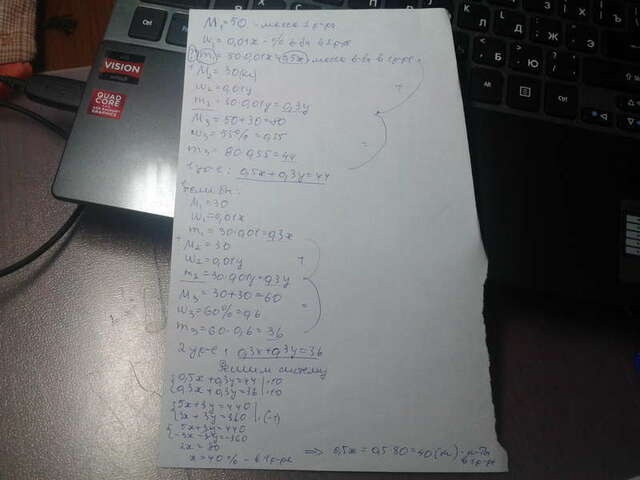 M₁=50 - масса 1 р-ра
W₁=0,01x - % в-ва в 1 р-ре
m₁=50·0,01x=0,5x масса в-ва в 1 р-ре
M₂=30(кг)
W₂=0,01y
m₂=30·0,01y=0,3y
M₃=50+30=80
W₃=55%=0,55
m₃=80·0,55=44
1 ур-е: 0,5x+0,3y=44
если бы:
M₁=30
W₁=0,01x
m₁=30·0,01=0,3x
M₂=30
W₂=0,01y
m₂=30·0,01y=0,3y
M₃=30+30=60
W₃=60%=0,6
m₃=60·0,6=36
2 ур-е: 0,3x+0,3y=36
Решим систему
0,5x+0,3y=44 |·10
0,3x+0,3y=36 |·10
5x+3y=440
3x+3y=360 |·(-1)
5x+3y=440
-3x-3y=-360
2x=80
x=40% - в 1 р-ре => 0,5x=0,5·80=40(кг) - к-ты в 1 р-ре
VISION
AMD
QUAD CORE